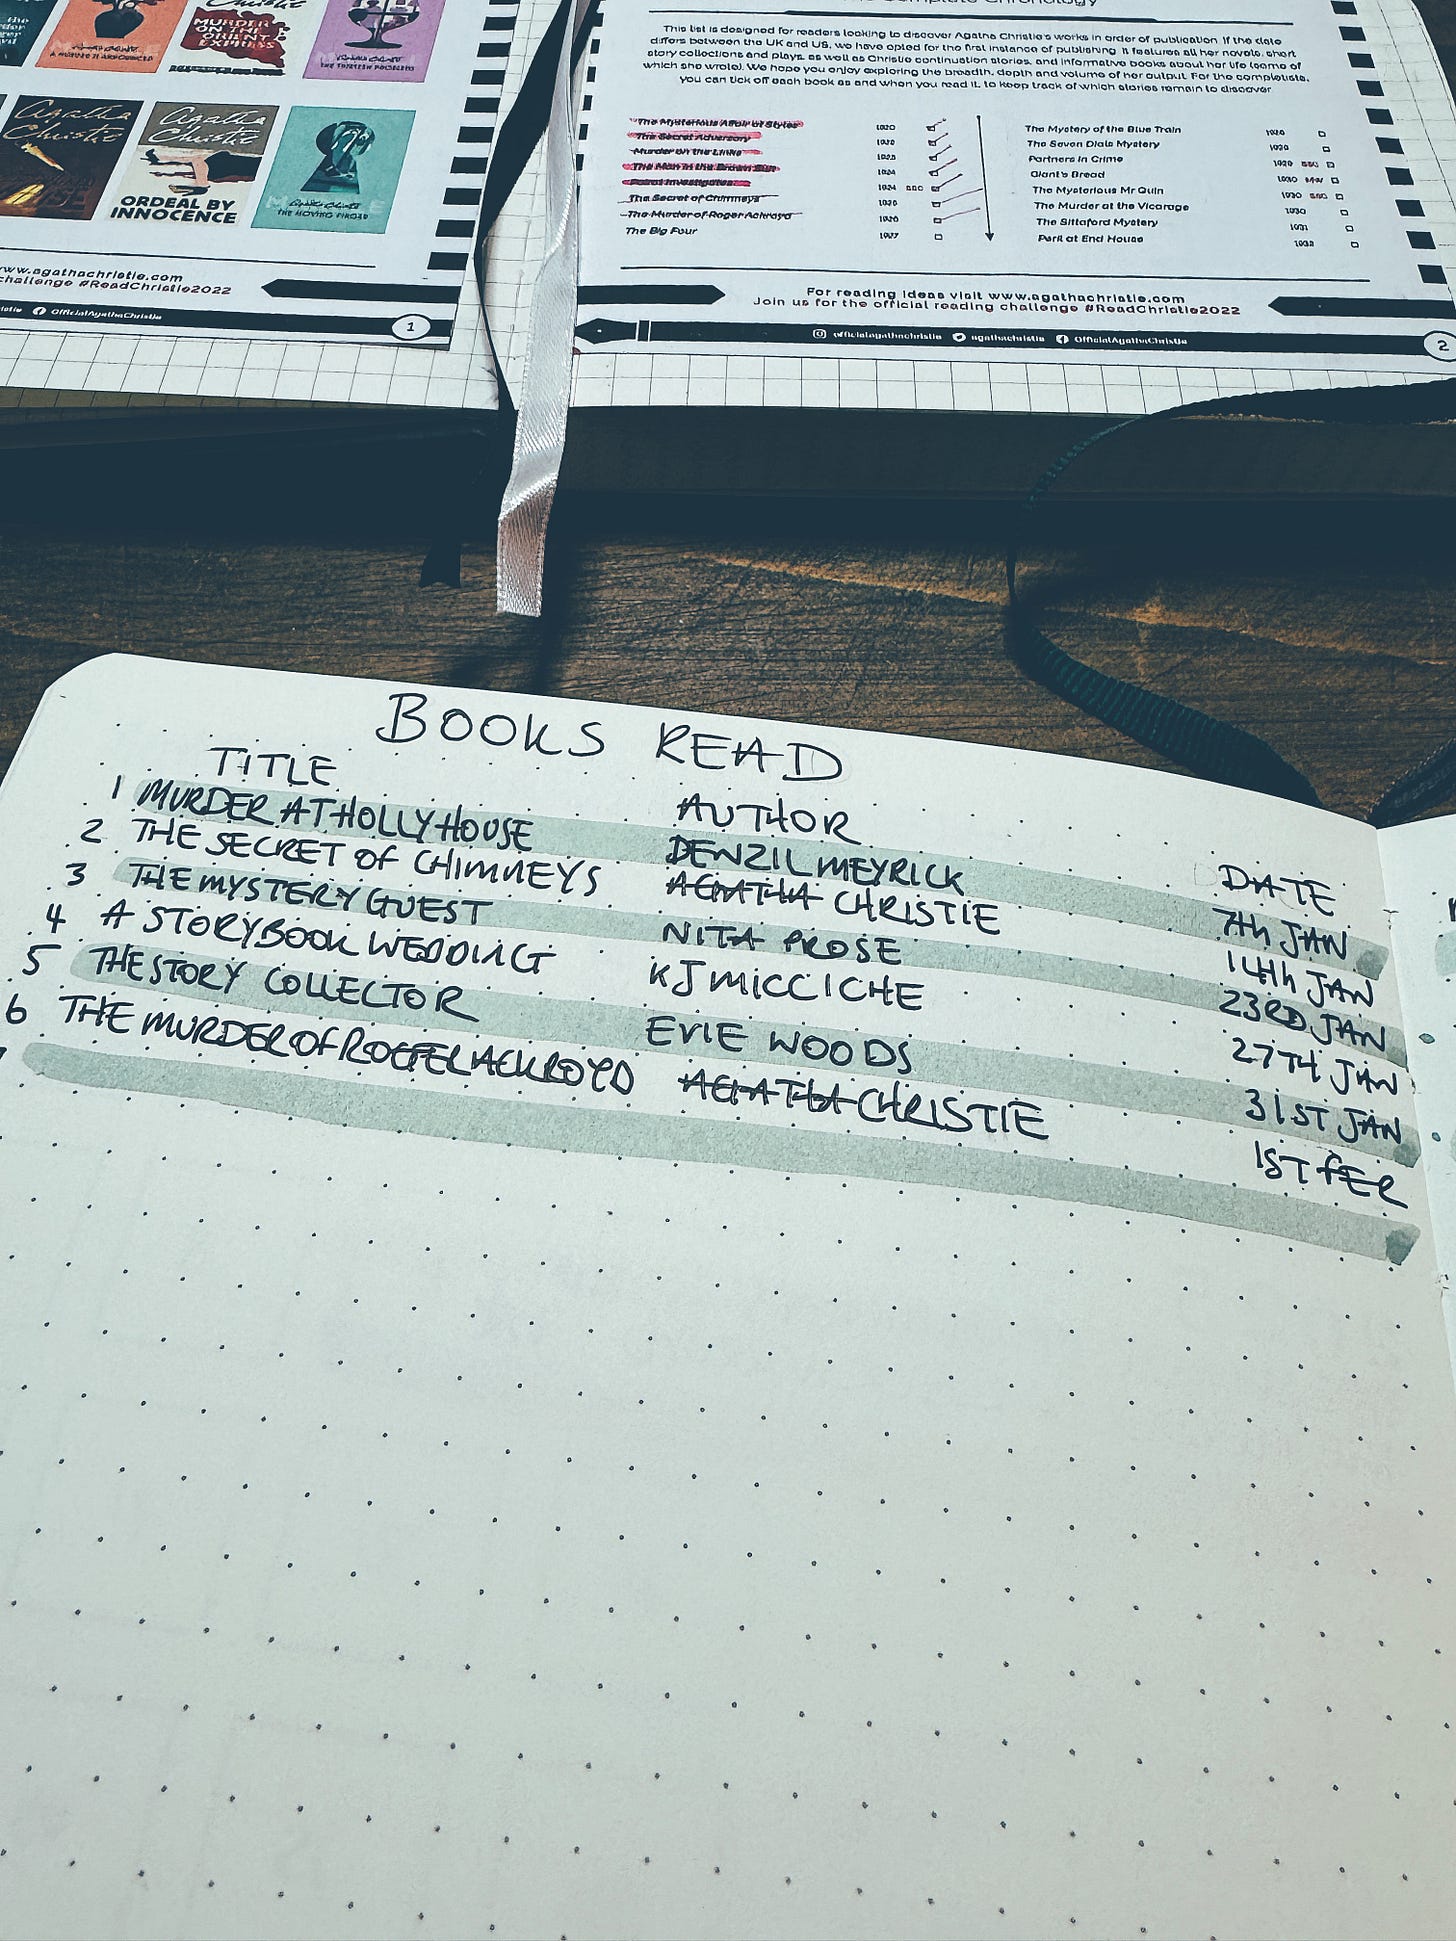 Christie
MURDER
ON THE
ORIENT
EXPRESS
Agatha
Christie
Agatha
Christie
ORDEAL BY
INNOCENCE
THE MOVING FINGER
www.agathachristie.com
challenge #ReadChristie2022
OfficialAgathaChristie
1
This list is designed for readers looking to discover Agatha Christie's works in order of publication. If the date
differs between the UK and US, we have opted for the first instance of publishing. It features all her novels, short
story collections and plays, as well as Christie continuation stories, and informative books about her life (some of
which she wrote). We hope you enjoy exploring the breadth, depth and volume of her output. For the completists,
you can tick off each book as and when you read it, to keep track of which stories remain to discover
The Mysterious Affair at Styles 1920
The Secret Adversary
Murder on the Links
The Man in the Brown Suit 1924
Poirot Investigates 1924
The Secret of Chimneys 1925
The Murder of Roger Ackroyd 1926
The Big Four 1927
The Mystery of the Blue Train
The Seven Dials Mystery 1929
Partners in Crime 1929
Giant's Bread 1930
The Mysterious Mr Quin 1930
The Murder at the Vicarage 1930
The Sittaford Mystery 1931
Peril at End House 1932
For reading ideas visit www.agathachristie.com
Join us for the official reading challenge #ReadChristie2022
officialagathachristie agathachristie OfficialAgathaChristie
2
BOOKS READ
TITLE AUTHOR DATE
1 MURDER AT HOLLY HOUSE DENZIL MEYRICK 7th JAN
2 THE SECRET OF CHIMNEYS AGATHA CHRISTIE 14th JAN
3 THE MYSTERY GUEST NITA PROSE 23RD JAN
4 A STORYBOOK WEDDING KJ MICCICHE 27TH JAN
5 THE STORY COLLECTOR EVIE WOODS 31ST JAN
6 THE MURDER OF ROGER ACKROYD AGATHA CHRISTIE 1ST FEB